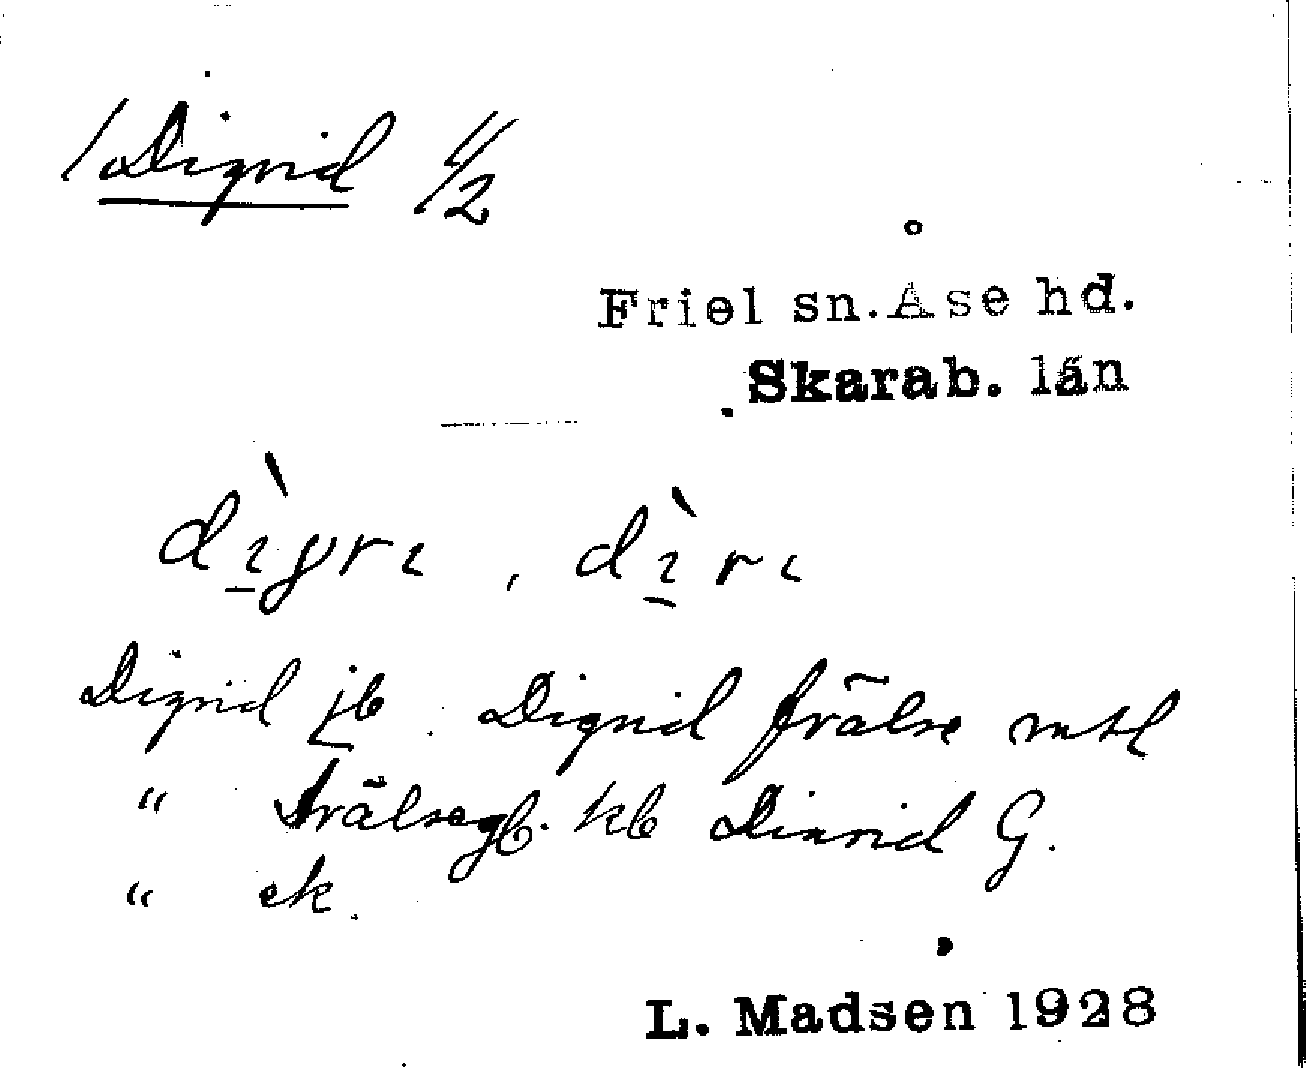 /Digrid 1/2
Friel sn. Åse hd.
Skarab. län
dìgrɩ, dìrɩ
Digrid jb. Digrid frälse mtl
" frälsegb. kb Dinrid G.
" ek.
L. Madsen 1928